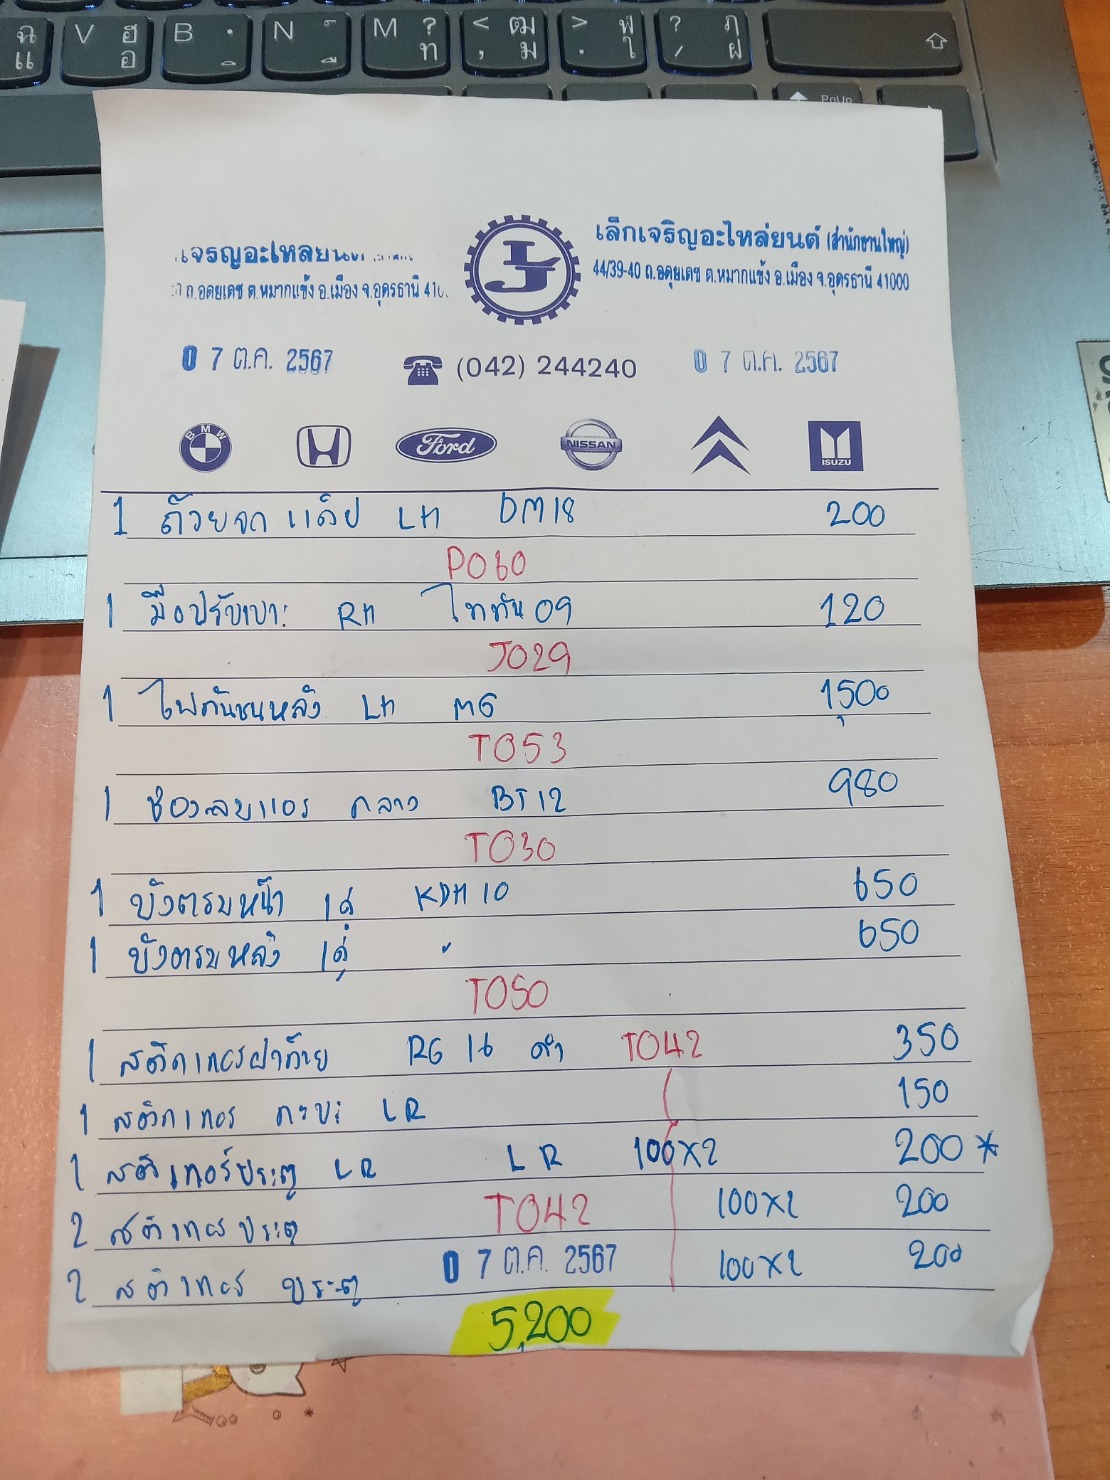 ฉ แ V ฮ อ B ฺ ิ N ์ ื M ? ท < , ฒ ม > . ฬ ใ ? / ฦ ฝ
PgUp
เล็กเจริญอะไหล่ยนต์ (สำนักงานใหญ่)
44/39-40 ถ.อดุยเดช ต.หมากแข้ง อ.เมือง จ.อุดรธานี 41000
ถ.อดุยเดช ต.หมากแข้ง อ.เมือง จ.อุดรธานี
LJ
0 7 ต.ค. 2567 (042) 244240 0 7 ต.ค. 2567
BMW Ford NISSAN ISUZU
1 ถ้วยจุกแค็ป LH DM18 200
P060
1 มือปรับเบาะ RH ไททัน 09 120
J029
1 ไฟกันชนหลัง LH MG 1,500
T053
1 ช่องลมแอร์ กลาง BT12 980
T030
1 บังตรมหน้า 1คู่ KDH10 650
1 บังตรมหลัง 1คู่ " 650
T050
1 สติกเกอร์ฝาท้าย RG 16 ดำ T042 350
1 สติกเกอร์ กะบะ LR 150
1 สติเกอร์ประตู LR LR 100x2 200 *
2 สติเกอร์ ประตู T042 100x2 200
2 สติเกอร์ ประตู 0 7 ต.ค. 2567 100x2 200
5,200